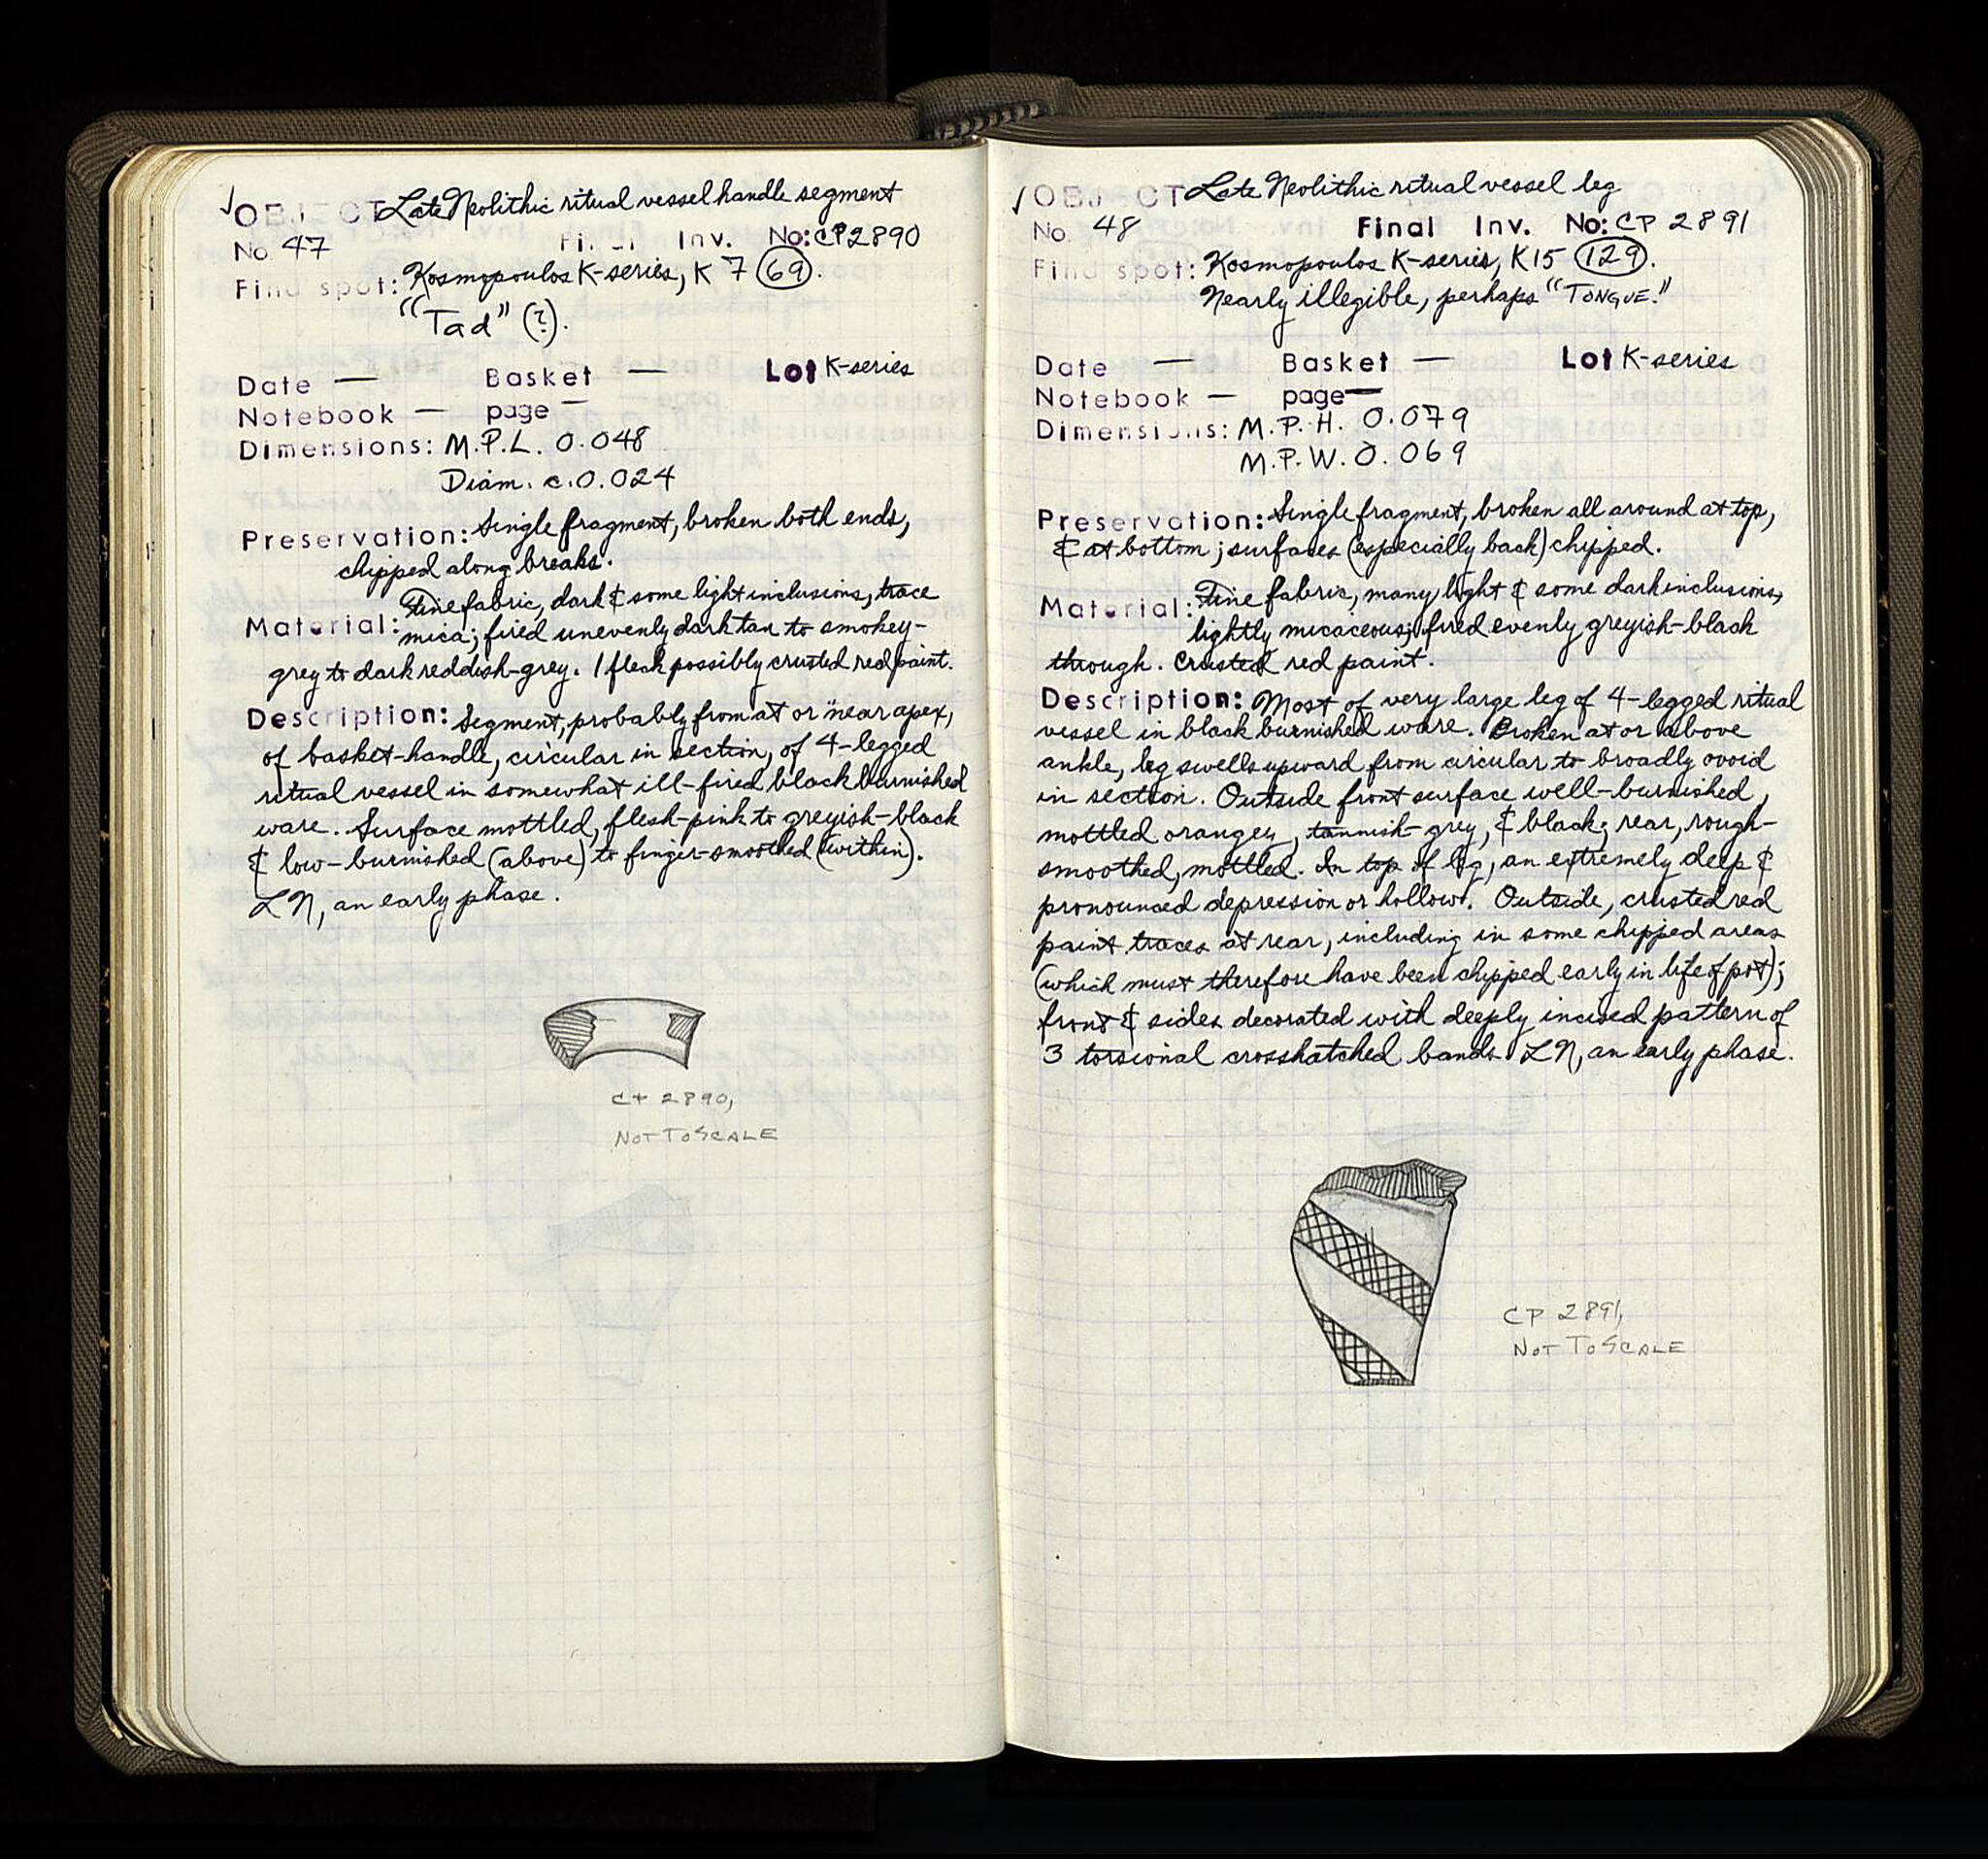 ✓ OBJECT Late Neolithic ritual vessel handle segment
No. 47 Final Inv. No: CP 2890
Find spot: Kosmopoulos K-series, K 7 (69).
"Tad" (?).
Date — Basket — Lot K-series
Notebook — page —
Dimensions: M.P.L. 0.048
Diam. c. 0.024
Preservation: Single fragment, broken both ends,
chipped along breaks.
Material: Fine fabric, dark & some light inclusions, trace
mica; fired unevenly dark tan to smokey-
grey to dark reddish-grey. 1 fleck possibly crusted red paint.
Description: Segment, probably from at or near apex,
of basket-handle, circular in section, of 4-legged
ritual vessel in somewhat ill-fired black burnished
ware. Surface mottled, flesh-pink to greyish-black
& low-burnished (above) to finger-smoothed (within).
LN, an early phase.
CP 2890,
NOT TO SCALE
✓ OBJECT Late Neolithic ritual vessel leg
No. 48 Final Inv. No: CP 2891
Find spot: Kosmopoulos K-series, K15 (129).
Nearly illegible, perhaps "TONGUE."
Date — Basket — Lot K-series
Notebook — page —
Dimensions: M.P.H. 0.079
M.P.W. 0.069
Preservation: Single fragment, broken all around at top,
& at bottom; surfaces (especially back) chipped.
Material: Fine fabric, many light & some dark inclusions,
lightly micaceous; fired evenly greyish-black
through. Crusted red paint.
Description: Most of very large leg of 4-legged ritual
vessel in black burnished ware. Broken at or above
ankle, leg swells upward from circular to broadly ovoid
in section. Outside front surface well-burnished,
mottled orangey, tannish-grey, & black; rear, rough-
smoothed, mottled. In top of leg, an extremely deep &
pronounced depression or hollow. Outside, crusted red
paint traces at rear, including in some chipped areas
(which must therefore have been chipped early in life of pot);
front & sides decorated with deeply incised pattern of
3 torsional crosshatched bands. LN, an early phase.
CP 2891,
NOT TO SCALE